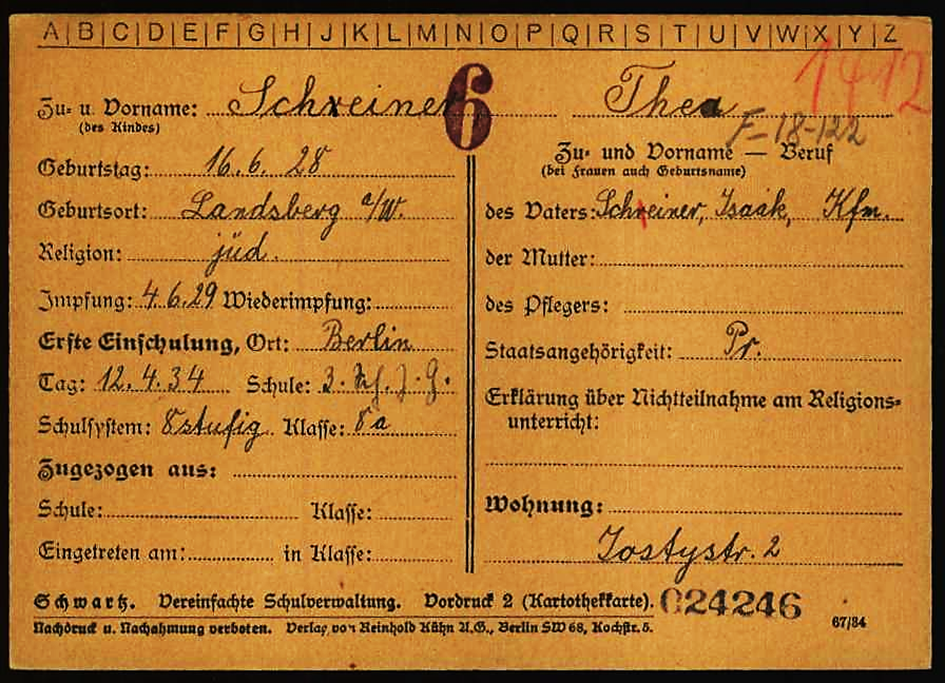 A|B|C|D|E|F|G|H|J|K|L|M|N|O|P|Q|R|S|T|U|V|W|X|Y|Z
1412
6
Zu- u. Vorname: Schreiner Thea
(des Kindes)
F-18-122
Geburtstag: 16. 6. 28
Geburtsort: Landsberg a/W.
Religion: jüd.
Impfung: 4.6.29 Wiederimpfung:
Erste Einschulung, Ort: Berlin
Tag: 12.4.34 Schule: 3.
Schulsystem: 8stufig Klasse: 8a
Zugezogen aus:
Schule: Klasse:
Eingetreten am: in Klasse:
Zu- und Vorname — Beruf
(bei Frauen auch Geburtsname)
des Vaters: Schreiner, Isaak, Kfm.
der Mutter:
des Pflegers:
Staatsangehörigkeit: Pr.
Erklärung über Nichtteilnahme am Religions-
unterricht:
Wohnung:
Jostystr. 2
Schwartz. Vereinfachte Schulverwaltung. Vordruck 2 (Kartothekkarte). 024246
Nachdruck u. Nachahmung verboten. Verlag von Reinhold Kühn A.G., Berlin SW 68, Kochstr. 5. 67/34